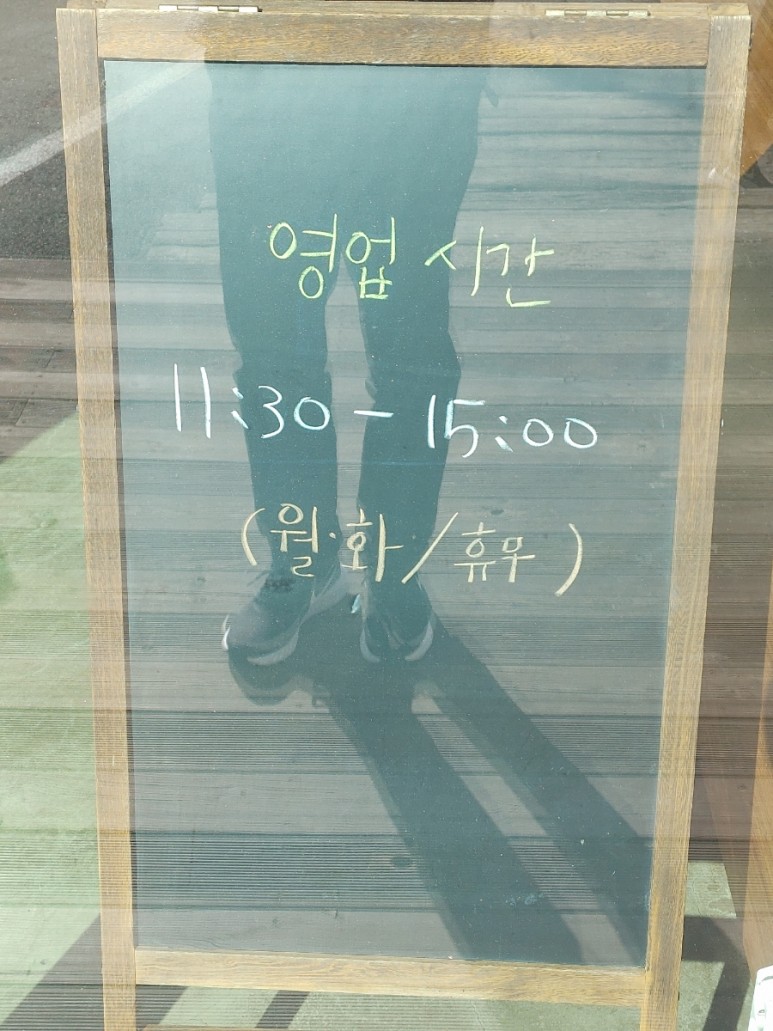 영업 시간
11:30 - 15:00
(월·화/휴무)